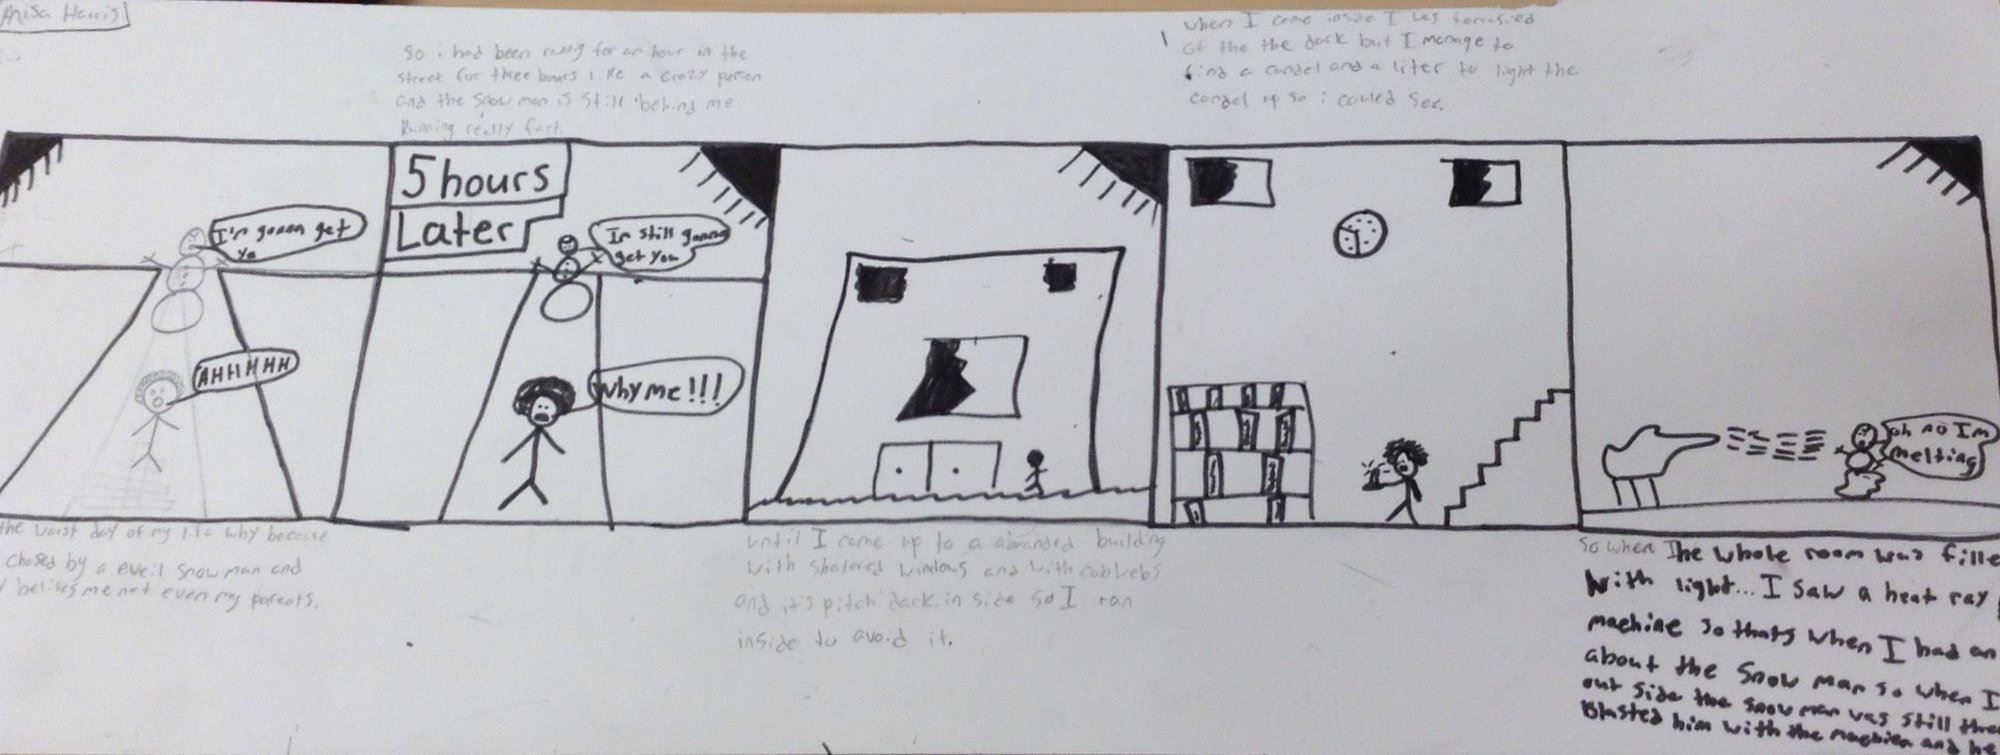 Anisa Harris
I'm gonna get
ya
AHHHHH
the worst day of my life why because
chased by a eveil snow man and
belives me not even my parents.
So i had been runing for an hour in the
street for three hours like a crazy person
and the snow man is still behind me
Running really fast.
5 hours
Later
Im still gonna
get you
Why me!!!
until I came up to a abanded building
with shatered windows and with cobwebs
and it's pitch dark in side so I ran
inside to avoid it.
when I came inside I was
of the the dark but I manage to
find a candel and a liter to light the
candel up so i could see.
oh no Im
melting
So when The whole room was fille
with light... I saw a heat ray
machine so thats when I had an
about the snow man so when I
out side the snow man was still ther
Blasted him with the and he